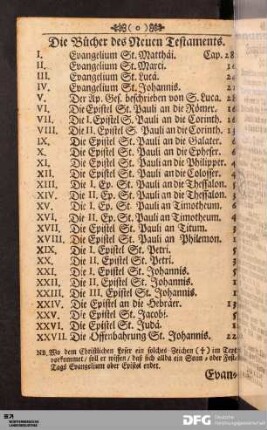 ( o )
Die Bücher des Neuen Testaments.
I. Evangelium St. Matthäi. Cap. 28
II. Evangelium St. Marci.
III. Evangelium St. Lucä.
IV. Evangelium St. Johannis.
V. Der Ap. Gesch. beschrieben von S. Luca. 28
VI. Die Epistel St. Pauli an die Römer. 16
VII. Die I. Epistel S. Pauli an die Corinth. 16
VIII. Die II. Epistel S. Pauli an die Corinth. 13
IX. Die Epistel St. Pauli an die Galater. 6
X. Die Epistel St. Pauli an die Epheser. 6
XI. Die Epistel St. Pauli an die Philipper. 4
XII. Die Epistel St. Pauli an die Colosser. 4
XIII. Die I. Ep. St. Pauli an die Thessalon. 5
XIV. Die II. Ep. St. Pauli an die Thessalon. 3
XV. Die I. Ep. St. Pauli an Timotheum. 6
XVI. Die II. Ep. St. Pauli an Timotheum. 4
XVII. Die Epistel St. Pauli an Titum. 3
XVIII. Die Epistel St. Pauli an Philemon. 1
XIX. Die I. Epistel St. Petri. 5
XX. Die II. Epistel St. Petri. 3
XXI. Die I. Epistel St. Johannis. 5
XXII. Die II. Epistel St. Johannis. 1
XXIII. Die III. Epistel St. Johannis. 1
XXIV. Die Epistel an die Hebräer. 13
XXV. Die Epistel St. Jacobi. 5
XXVI. Die Epistel St. Judä. 1
XXVII. Die Offenbahrung St. Johannis. 22
NB. Wo dem Christlichen Leser ein solches Zeichen (†) im Text
vorkommet / soll er wissen / daß sich allda ein Sonn- oder
Tags Evangelium oder Epistel endet.
Evan-
DFG